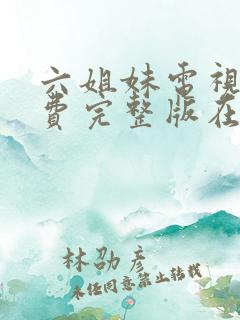 六姐妹電視
費完整版在
林劭彥
未經同意禁止轉載